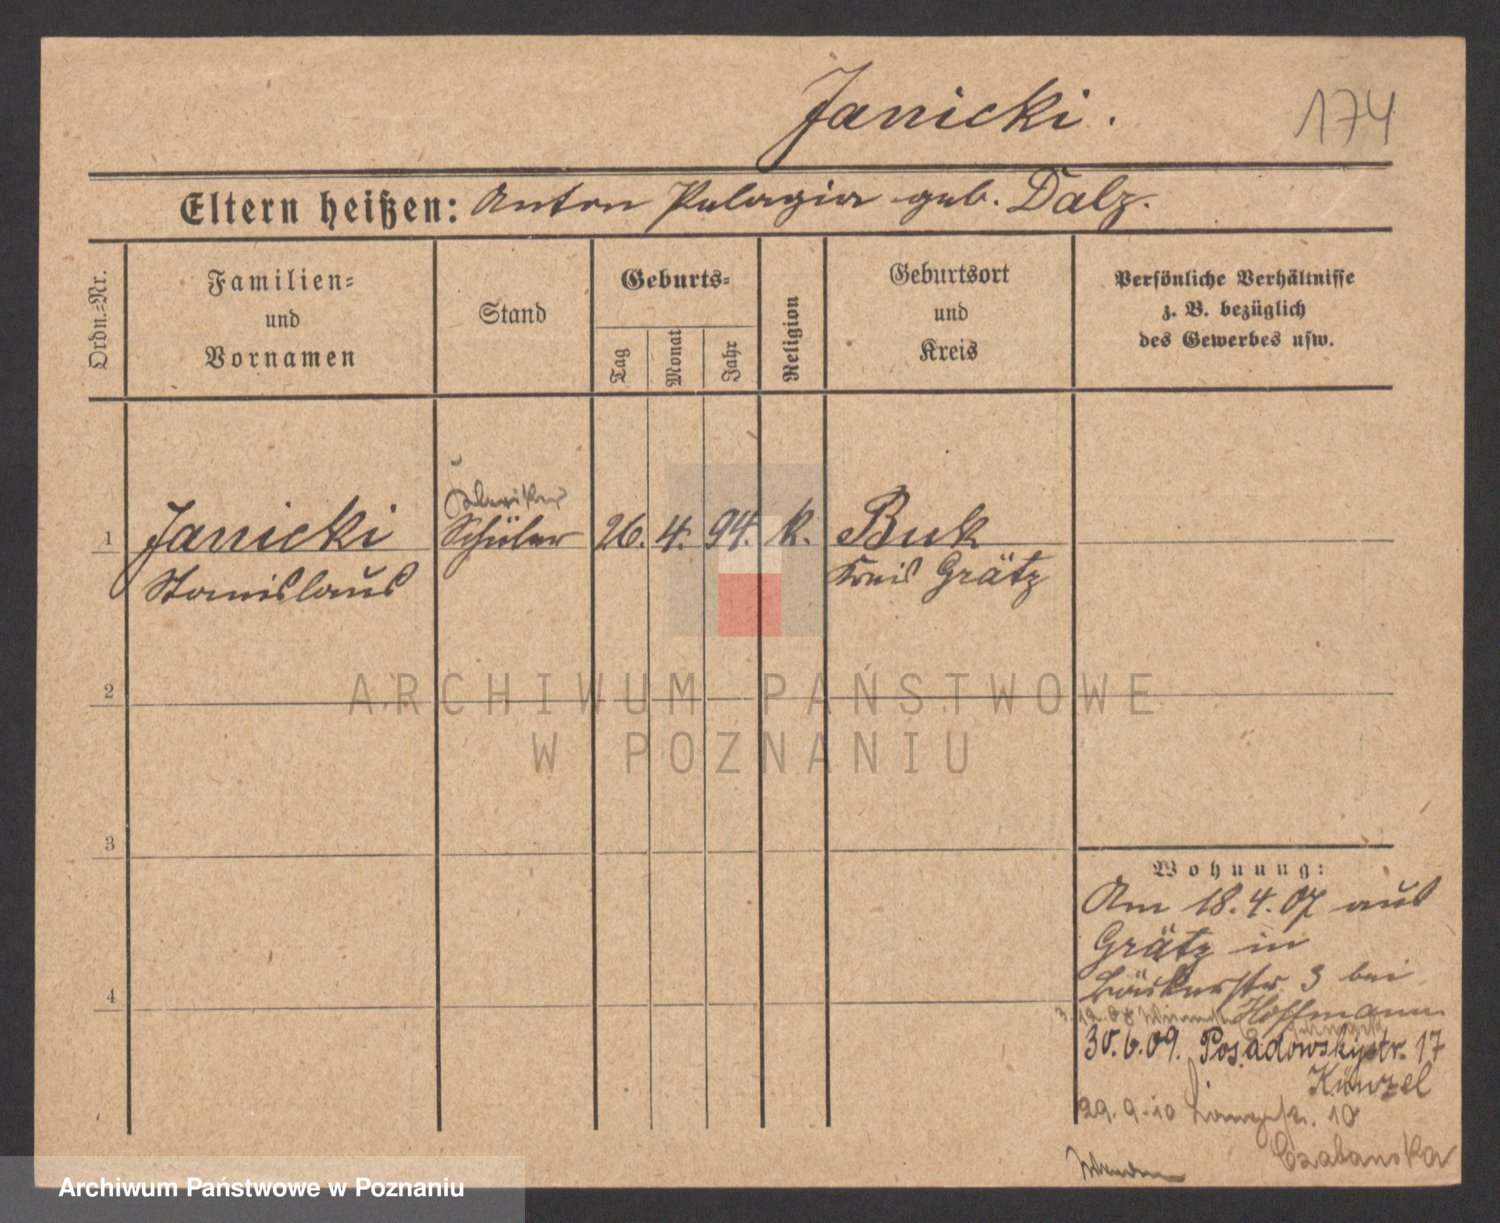 Janicki.
174
Eltern heißen: Anton Pelagia geb. Dalz.
Ordn.=Nr.
Familien=
und
Vornamen
Stand
Geburts=
Tag
Monat
Jahr
Religion
Geburtsort
und
Kreis
Persönliche Verhältnisse
z. B. bezüglich
des Gewerbes usw.
1 Janicki Schüler 26. 4. 94. k. Buk
Stanislaus Kreis Grätz
2
3
4
Wohnung:
Am 18.4.07 aus
Grätz in
Bäckerstr. 3 bei
3.12.08 Hoffmann
30.6.09. Posadowskystr. 17
Künzel
29.9.10 Langestr. 10
Czabanska
ARCHIWUM PAŃSTWOWE
W POZNANIU
Archiwum Państwowe w Poznaniu